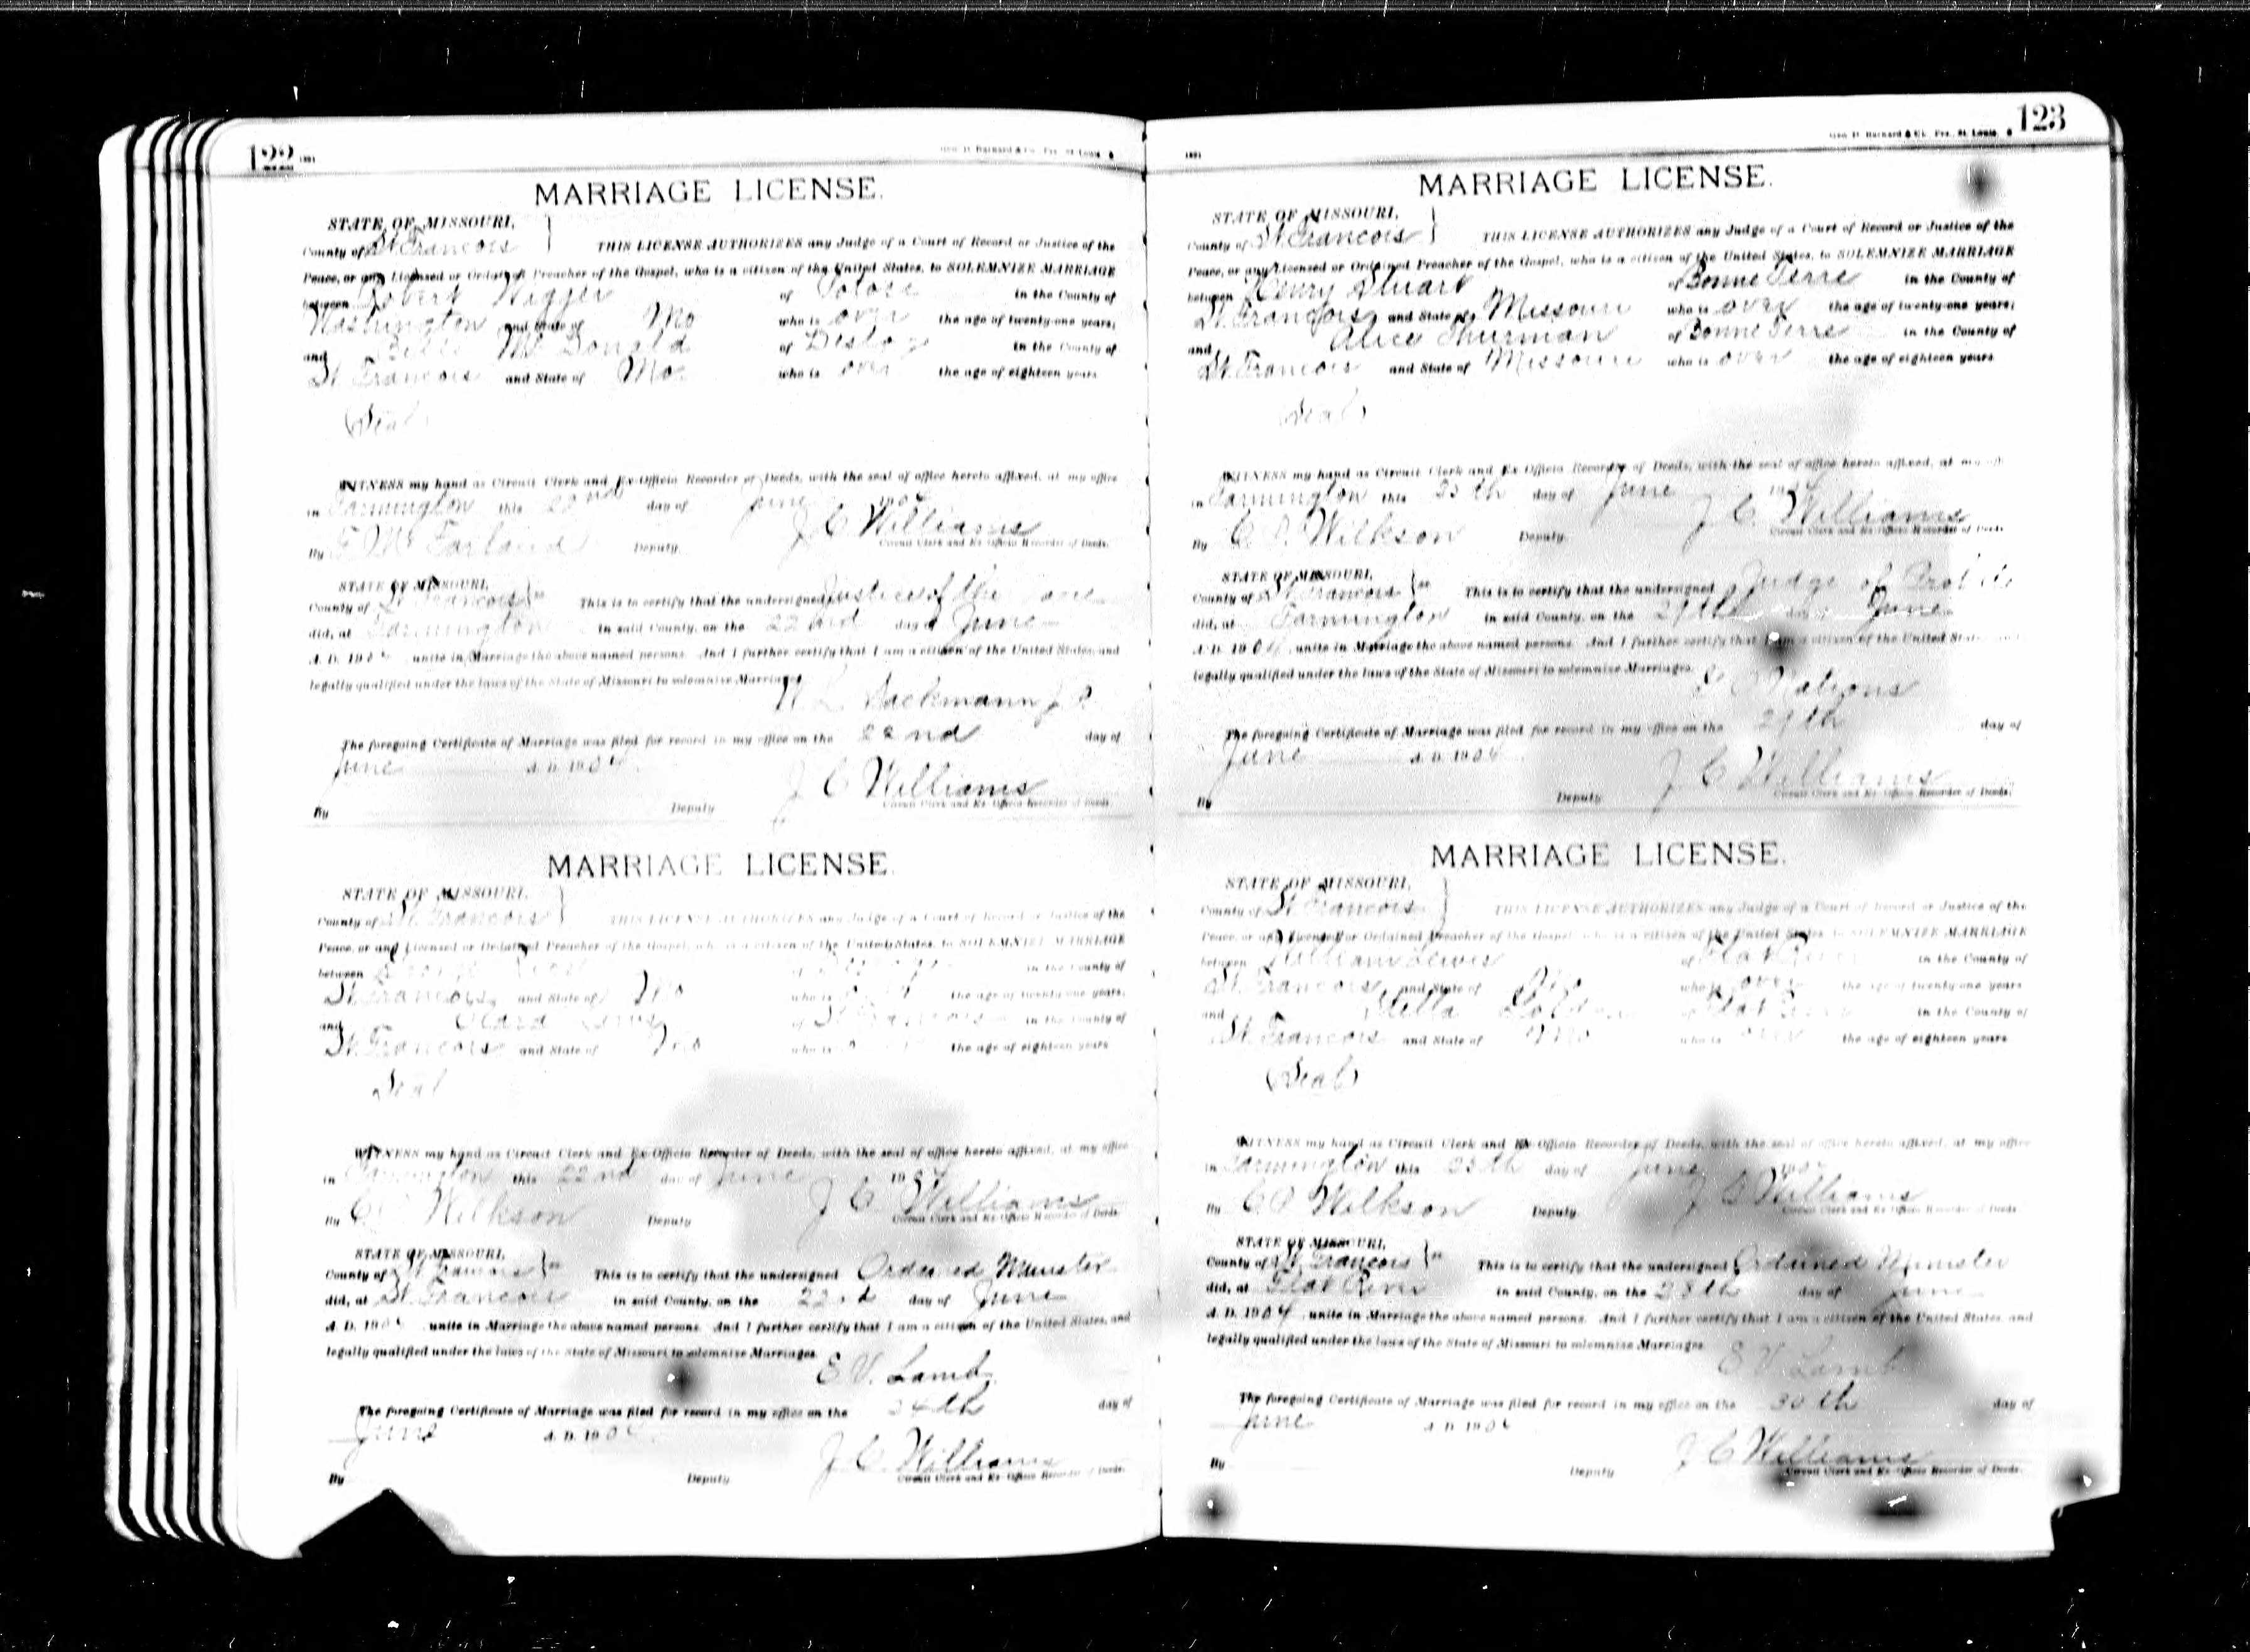 122
MARRIAGE LICENSE.
STATE OF MISSOURI,
County of St Francois THIS LICENSE AUTHORIZES any Judge of a Court of Record or Justice of the
Peace, or any Licensed or Ordained Preacher of the Gospel, who is a citizen of the United States, to SOLEMNIZE MARRIAGE
between Robert of Potosi in the County of
Washington and State of Mo who is over the age of twenty-one years;
and Belle McDonald of Desloge in the County of
St Francois and State of Mo. who is over the age of eighteen years
(Seal)
WITNESS my hand as Circuit Clerk and Ex-Officio Recorder of Deeds, with the seal of office hereto affixed, at my office
in Farmington this 22nd day of June 1904
J C Williams
By McFarland Deputy. Circuit Clerk and Ex-Officio Recorder of Deeds.
STATE OF MISSOURI,
County of St Francois ss This is to certify that the undersigned Justice of the
did, at Farmington in said County, on the 22nd day of June
A. D. 1904, unite in Marriage the above named persons. And I further certify that I am a citizen of the United States, and
legally qualified under the laws of the State of Missouri to solemnize Marriages.
The foregoing Certificate of Marriage was filed for record in my office on the 22nd day of
June A. D. 1904
J C Williams
By Deputy Circuit Clerk and Ex-Officio Recorder of Deeds.
MARRIAGE LICENSE.
STATE OF MISSOURI,
County of St Francois THIS LICENSE AUTHORIZES any Judge of a Court of Record or Justice of the
Peace, or any Licensed or Ordained Preacher of the Gospel, who is a citizen of the United States, to SOLEMNIZE MARRIAGE
between of in the County of
St Francois and State of Mo who is the age of twenty-one years,
and Clara of St Francois in the County of
St Francois and State of Mo who is the age of eighteen years
Seal
WITNESS my hand as Circuit Clerk and Ex-Officio Recorder of Deeds, with the seal of office hereto affixed, at my office
in Farmington this 22nd day of June 1904
J C Williams
By Wilkson Deputy Circuit Clerk and Ex-Officio Recorder of Deeds
STATE OF MISSOURI,
County of St Francois ss This is to certify that the undersigned Ordained Minister
did, at St Francois in said County, on the 22nd day of June
A. D. 1904, unite in Marriage the above named persons. And I further certify that I am a citizen of the United States, and
legally qualified under the laws of the State of Missouri to solemnize Marriages.
E. V. Lamb
The foregoing Certificate of Marriage was filed for record in my office on the 24th day of
June A. D. 1904
J C Williams
By Deputy Circuit Clerk and Ex-Officio Recorder of Deeds.
123
MARRIAGE LICENSE.
STATE OF MISSOURI,
County of St Francois THIS LICENSE AUTHORIZES any Judge of a Court of Record or Justice of the
Peace, or any Licensed or Ordained Preacher of the Gospel, who is a citizen of the United States, to SOLEMNIZE MARRIAGE
between Henry Stuart of Bonne Terre in the County of
St Francois and State of Missouri who is over the age of twenty-one years;
and Alice Thurman of Bonne Terre in the County of
St Francois and State of Missouri who is over the age of eighteen years
(Seal)
WITNESS my hand as Circuit Clerk and Ex Officio Recorder of Deeds, with the seal of office hereto affixed, at my
in Farmington this 25th day of June 1904
J C. Williams
By Wilkson Deputy. Circuit Clerk and Ex-Officio Recorder of Deeds.
STATE OF MISSOURI,
County of St Francois ss This is to certify that the undersigned Judge of
did, at Farmington in said County, on the day of June
A. D. 1904, unite in Marriage the above named persons. And I further certify that I am a citizen of the United States
legally qualified under the laws of the State of Missouri to solemnize Marriages.
The foregoing Certificate of Marriage was filed for record in my office on the day of
June A. D. 1904
J C Williams
By Deputy Circuit Clerk and Ex-Officio Recorder of Deeds.
MARRIAGE LICENSE.
STATE OF MISSOURI,
County of St Francois THIS LICENSE AUTHORIZES any Judge of a Court of Record or Justice of the
Peace, or any Licensed or Ordained Preacher of the Gospel, who is a citizen of the United States, to SOLEMNIZE MARRIAGE
between William Lewis of Flat River in the County of
St Francois and State of Mo who is over the age of twenty-one years
and Stella of Flat River in the County of
St Francois and State of Mo who is over the age of eighteen years
(Seal)
WITNESS my hand as Circuit Clerk and Ex Officio Recorder of Deeds, with the seal of office hereto affixed, at my office
in Farmington this day of June 1904
J C Williams
By Wilkson Deputy. Circuit Clerk and Ex-Officio Recorder of Deeds.
STATE OF MISSOURI,
County of St Francois ss This is to certify that the undersigned Ordained Minister
did, at Flat River in said County, on the 28th day of June
A. D. 1904, unite in Marriage the above named persons. And I further certify that I am a citizen of the United States, and
legally qualified under the laws of the State of Missouri to solemnize Marriages.
E V. Lamb
The foregoing Certificate of Marriage was filed for record in my office on the 30th day of
June A. D. 1904
J C Williams
By Deputy Circuit Clerk and Ex-Officio Recorder of Deeds.